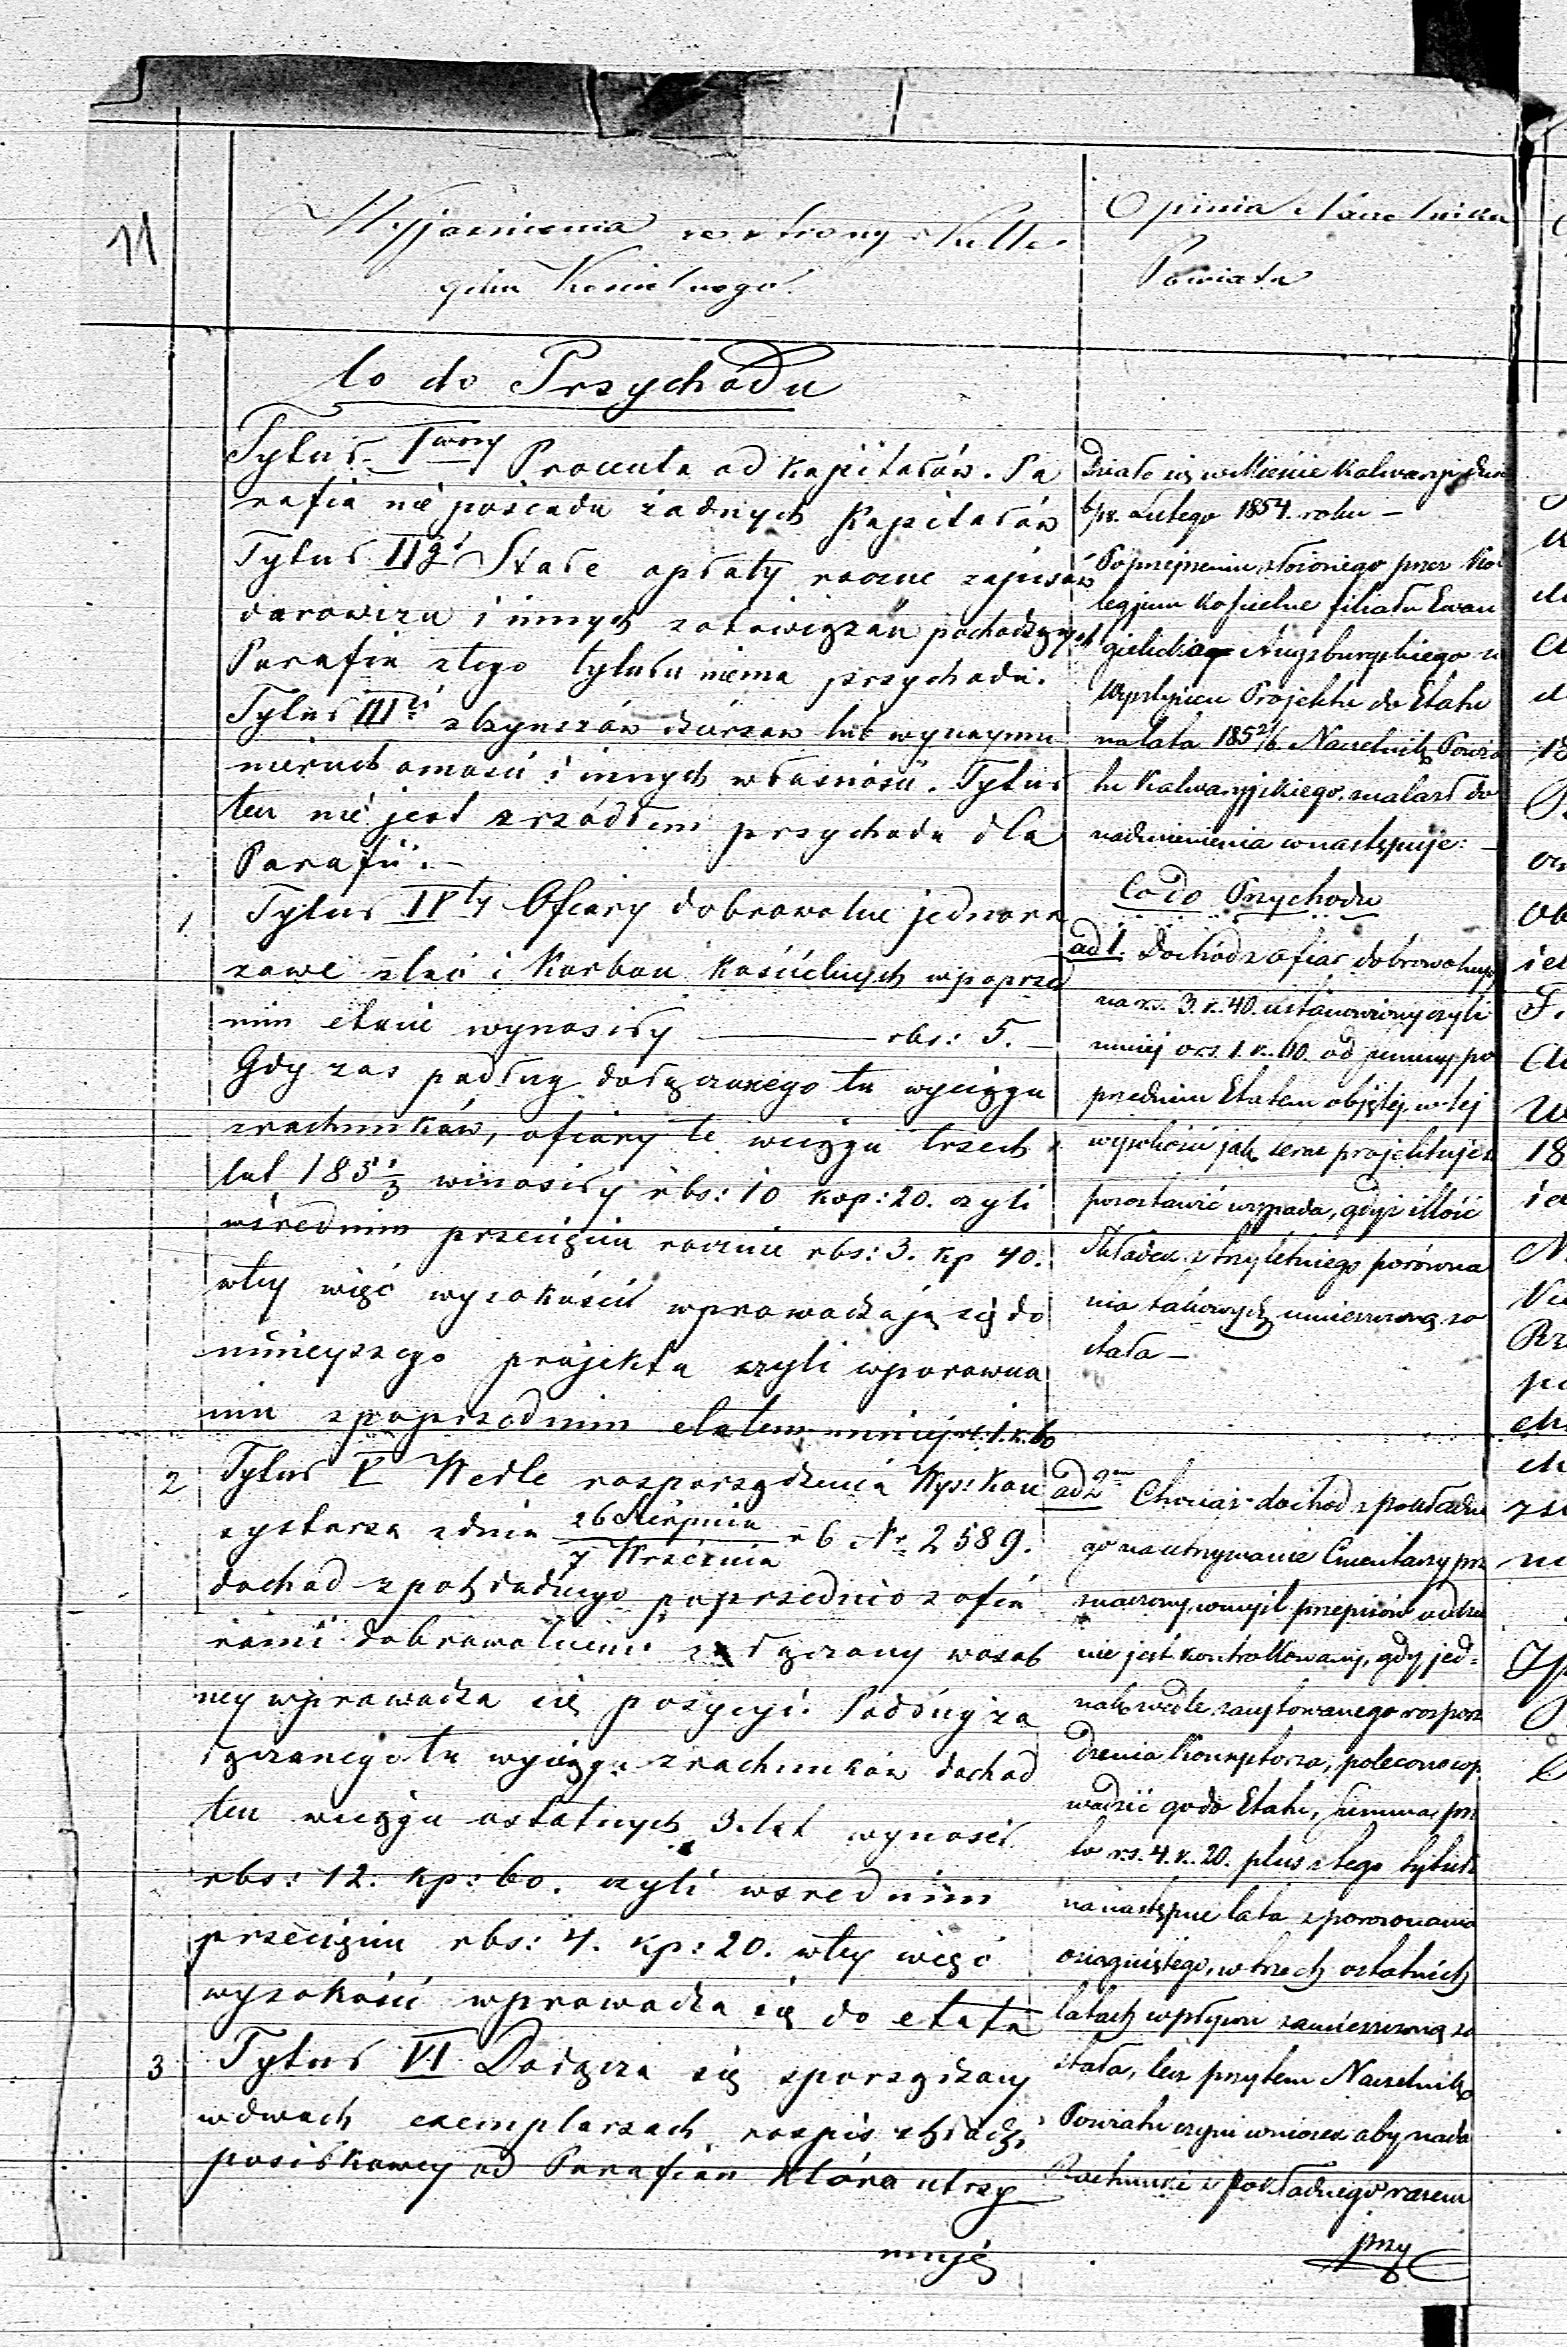 11
Wyjaśnienia ze strony Kolle-
gium Kościelnego
Co do Przychodu
Tytuł Iwszy Procenta od Kapitałów. Pa
rafia nie posiada żadnych Kapitałów
Tytuł IIgi Stałe opłaty roczne zapisów
darowizn i innych zobowiązań pochodzących
Parafia z tego tytułu niema przychodu.
Tytuł IIIci z Czynszów dzierżaw lub wynaymu
nieruchomości i innych własności. Tytuł
ten nie jest zrzódłem przychodu dla
Parafii.—
1 Tytuł IVty Ofiary dobrowolne jednora
zowe z tac i Karbon Kościelnych w poprzed
nim etacie wynosiły — rbs: 5.—
Gdy zas podług dołączonego tu wyciągu
z rachunków, ofiary te w ciągu trzech
lat 185 1/3 winosiły rbs: 10 kop: 20. czyli
w średnim przecięciu rocznie rbs: 3. kp 40.
w tey więc wysokości wprowadzają się do
niniejszego projektu czyli w porowna
niu z poprzednim etatem mniej rs. 1. k. 60
2 Tytuł V Wedle rozporządzenia Wys: Kon
systorza z dnia 26 Sierpnia / 7 Września r b No 2589.
dochod z pokładnego poprzednio z ofia
rami dobrowolnemi złączony w osob
ney wprowadza się pozycyi. Podług za
łączonego tu wyciągu z rachunków dochod
ten w ciągu ostatnych 3. lat wynosił
rbs: 12. kp: 60. czyli w srednim
przecięciu rbs: 4. kp: 20. w tey więc
wysokości wprowadza się do etatu
3 Tytuł VI Dołącza się sporządzony
w dwoch exemplarzach rozpis składki
posiłkowey od Parafian która utrzy
muję
Opinia Naczelnika
Powiatu
Działo się w Mieście Kalwaryi dnia
6/18. Lutego 1854. roku —
Po przejrzeniu złożonego przez Kol
legjum Kościelne filiału Ewan
gielicko Augsburgskiego w
Wysztyńcu Projektu do Etatu
na lata 185 4/6 Naczelnik Powia
tu Kalwaryjskiego. znalazł do
nadmienienia co następuje: —
Co do Przychodu
ad 1. Dochód z ofiar dobrowolnych
na rs. 3. k. 40. ustanowiony czyli
mniéj o rs. 1. k. 60. od summy po
przednim Etatem objętéj, w téj
wysokości jak teraz projektuje się
pozostawić wypada, gdyż illość
Składek z trzyletniego porówna
nia takowych umieszczoną zo
stała —
ad 2m Chociaż dochod z pokładne
go na utrzymanie Cmentarzy prze
znaczony, w myśl przepisów
nie jest kontrollowany, gdy jed-
nak wedle zacytowanego rozporzą
dzenia Konsystorza, polecono wpro
wadzić go do Etatu, summa prze
to rs. 4. k. 20. plus z tego tytułu
na następne lata z porownania
osiągniętego, w trzech ostatnich
latach wpływu zamieszczoną zo
stała, lecz przytem Naczelnik
Powiatu czyni wniosek aby nada
Rachunki z pokładnego razem
przy